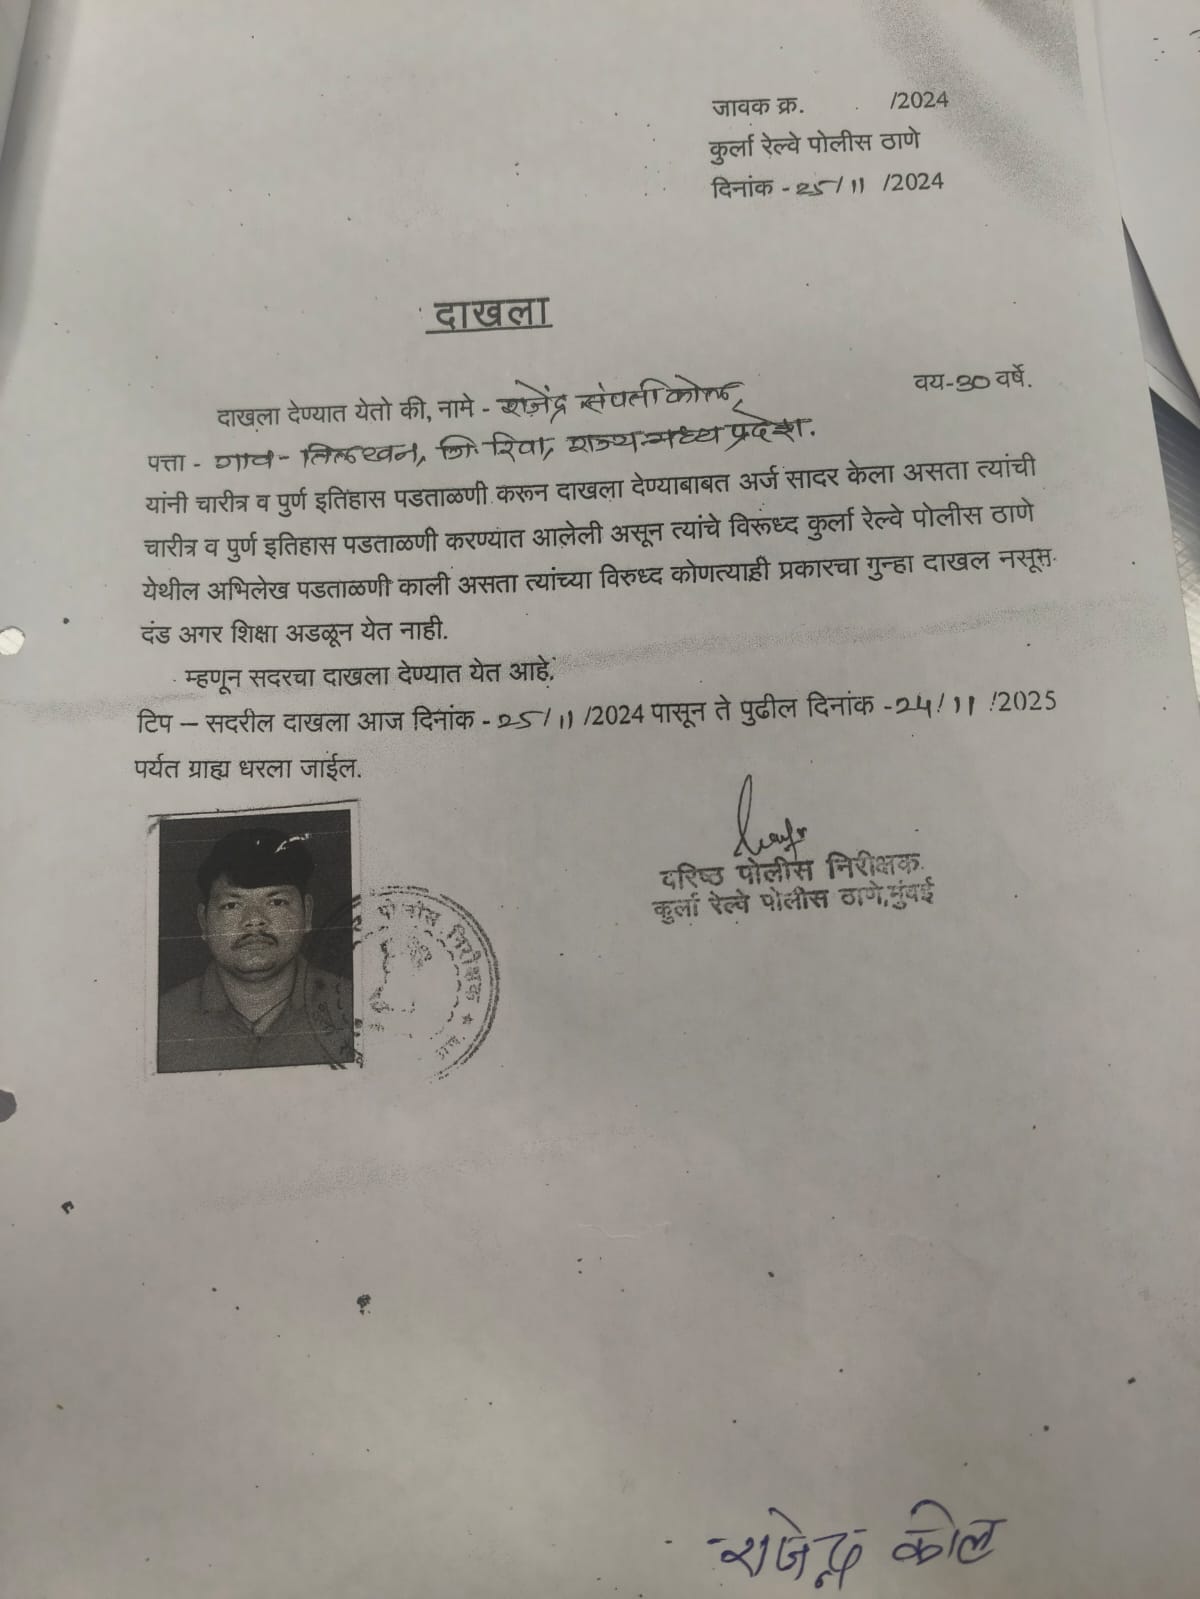 जावक क्र. /2024
कुर्ला रेल्वे पोलीस ठाणे
दिनांक - 25/11 /2024
दाखला
दाखला देण्यात येतो की, नामे - राजेंद्र संपती कोल, वय-30 वर्षे.
पत्ता - गाव - तिलखन, जि. रिवा, राज्य-मध्य प्रदेश.
यांनी चारीत्र व पुर्ण इतिहास पडताळणी करून दाखला देण्याबाबत अर्ज सादर केला असता त्यांची
चारीत्र व पुर्ण इतिहास पडताळणी करण्यात आलेली असून त्यांचे विरूध्द कुर्ला रेल्वे पोलीस ठाणे
येथील अभिलेख पडताळणी काली असता त्यांच्या विरुध्द कोणत्याही प्रकारचा गुन्हा दाखल नसूम
दंड अगर शिक्षा अडळून येत नाही.
म्हणून सदरचा दाखला देण्यात येत आहे.
टिप – सदरील दाखला आज दिनांक - 25/11 /2024 पासून ते पुढील दिनांक -24/11 /2025
पर्यत ग्राह्य धरला जाईल.
वरिष्ठ पोलीस निरीक्षक
कुर्ला रेल्वे पोलीस ठाणे,मुंबई
पोलीस निरीक्षक
राजेन्द्र कोल